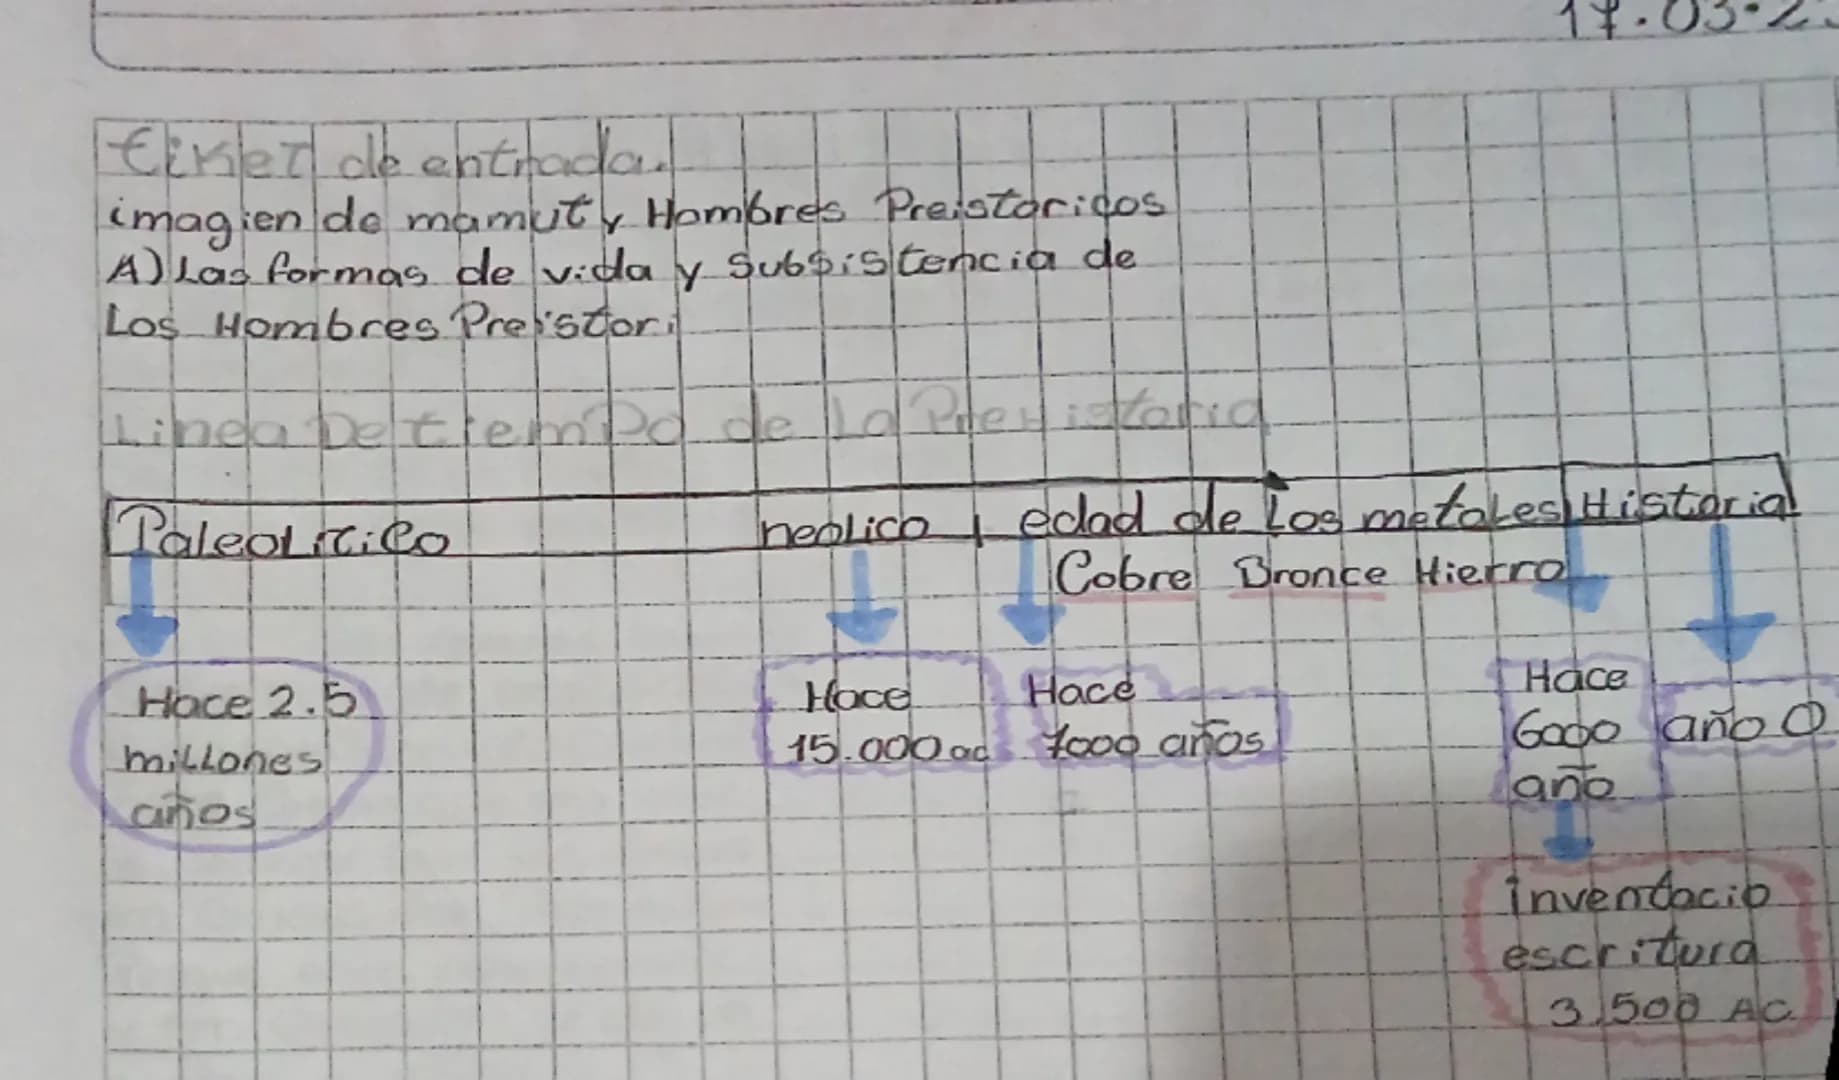 17.03.2
tiket de entrada.
imagien de mamut y Hombres Preistoricos
A) Las formas de vida y Subsistencia de
Los Hombres Preistori
Linea De tiempo de La Prehistoria
Paleolitico neolico edad de Los metales Historia
Cobre Bronce Hierro
Hace 2.5
millones
años
Hace
15.000 ac
Hace
7000 años
Hace
6000
año
año 0
inventacio
escritura
3.500 AC